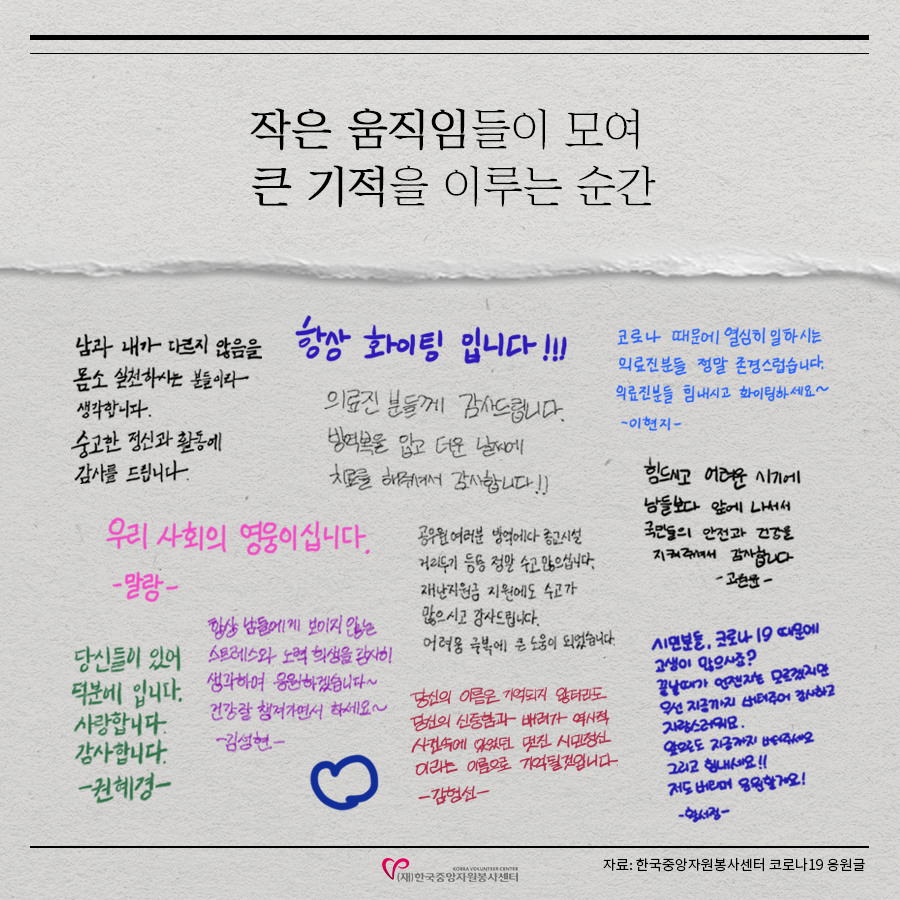 작은 움직임들이 모여
큰 기적을 이루는 순간
남과 내가 다르지 않음을
몸소 실천하시는 분들이라
생각합니다.
숭고한 정신과 활동에
감사를 드립니다.
항상 화이팅 입니다!!!
의료진 분들께 감사드립니다.
방역복을 입고 더운 날씨에
치료를 해주셔서 감사합니다!!
코로나 때문에 열심히 일하시는
의료진분들 정말 존경스럽습니다.
의료진분들 힘내시고 화이팅하세요~
-이현지-
힘드시고 어려운 시기에
남들보다 앞에 나서서
국민들의 안전과 건강을
지켜주셔서 감사합니다
우리 사회의 영웅이십니다.
-말랑-
공무원여러분 방역에다 종교시설
거리두기 등등 정말 수고많으십니다.
재난지원금 지원에도 수고가
많으시고 감사드립니다.
어려움 극복에 큰 도움이 되었습니다.
당신들이 있어
덕분에 입니다.
사랑합니다.
감사합니다.
-권혜경-
항상 남들에게 보이지 않는
스트레스와 노력 희생을 감사히
생각하며 응원하겠습니다~
건강잘 챙겨가면서 하세요~
-김성현-
당신의 이름은 기억되지 않더라도
당신의 신중함과 배려가 역사적
사건속에 있었던 멋진 시민정신
이라는 이름으로 기억될것입니다.
-김형선-
시민분들, 코로나19 때문에
고생이 많으시죠?
끝날때가 언젠지는 모르겠지만
우선 지금까지 버텨주어 감사하고
자랑스러워요.
앞으로도 지금까지 버텨주세요
그리고 힘내세요!!
저도 버티며 응원할게요!
KOREA VOLUNTEER CENTER
(재)한국중앙자원봉사센터
자료: 한국중앙자원봉사센터 코로나19 응원글